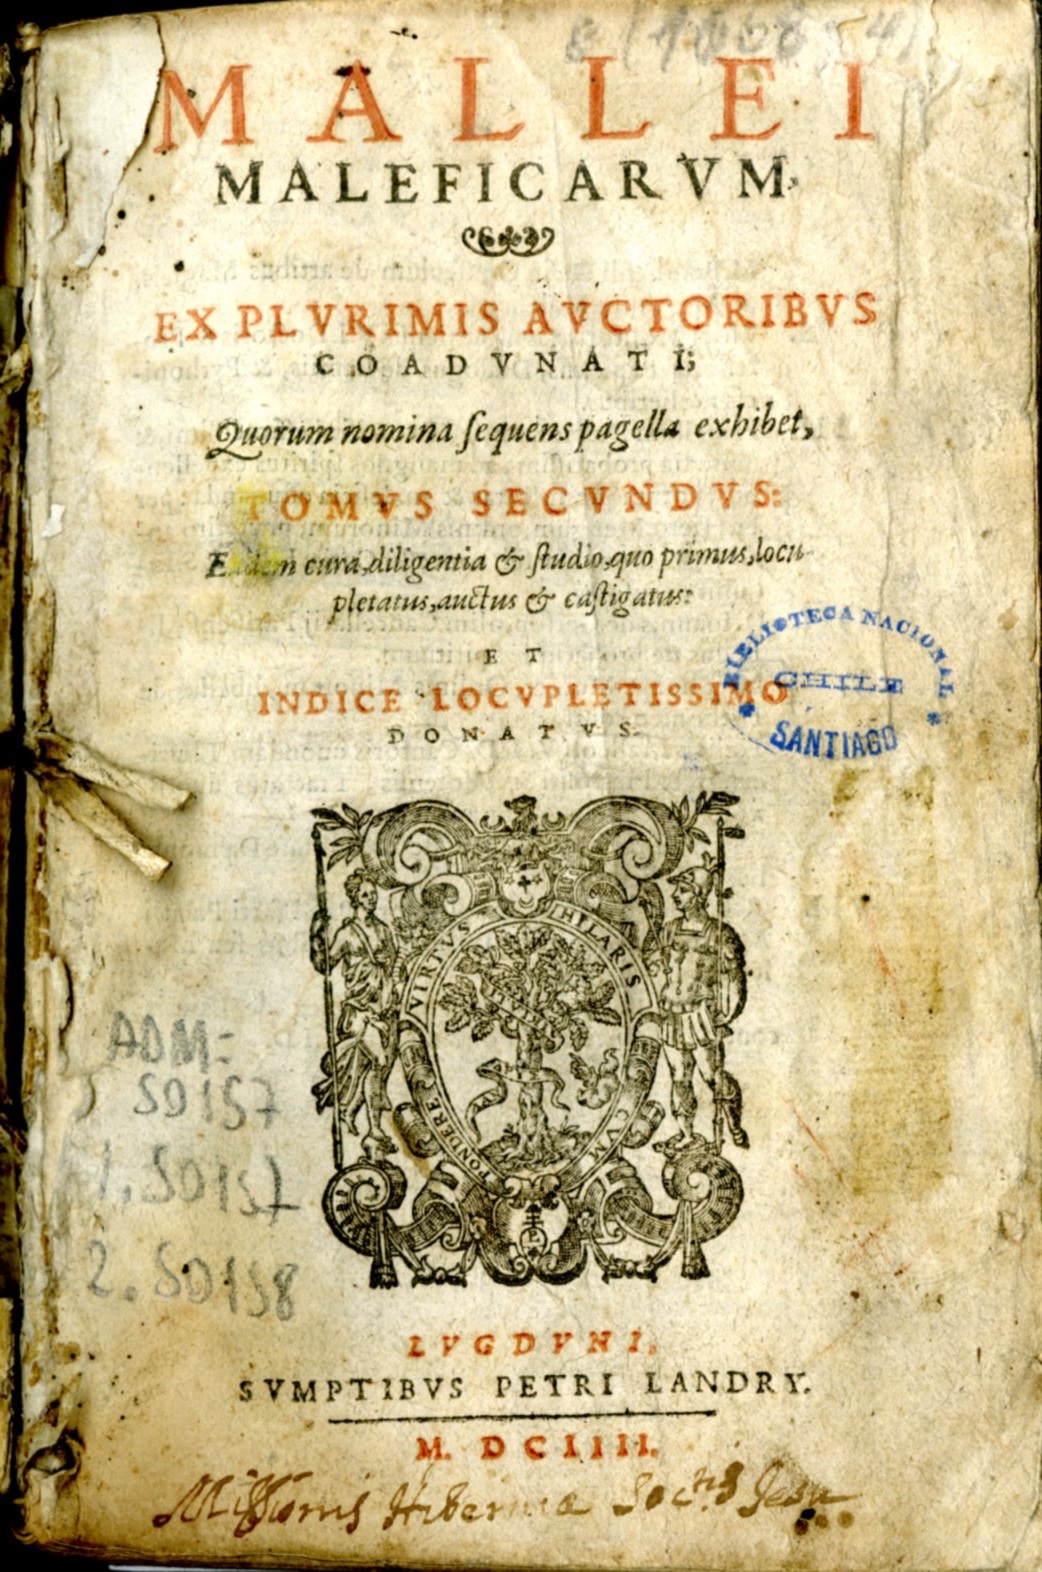 MALLEI
MALEFICARVM,
EX PLVRIMIS AVCTORIBVS
COADVNATI;
Quorum nomina ſequens pagella exhibet,
TOMVS SECVNDVS:
Eadem cura, diligentia & ſtudio, quo primus, locu-
pletatus, auctus & caſtigatus:
ET
INDICE LOCVPLETISSIMO
DONATVS.
BIBLIOTECA NACIONAL
CHILE
SANTIAGO
VIRTVS HILARIS
CVM PONDERE
ADM=
SO157
1. SO157
2. SO158
LVGDVNI,
SVMPTIBVS PETRI LANDRY.
M. DCIIII.
Miſſionis Hiberniæ Soctis Jesu